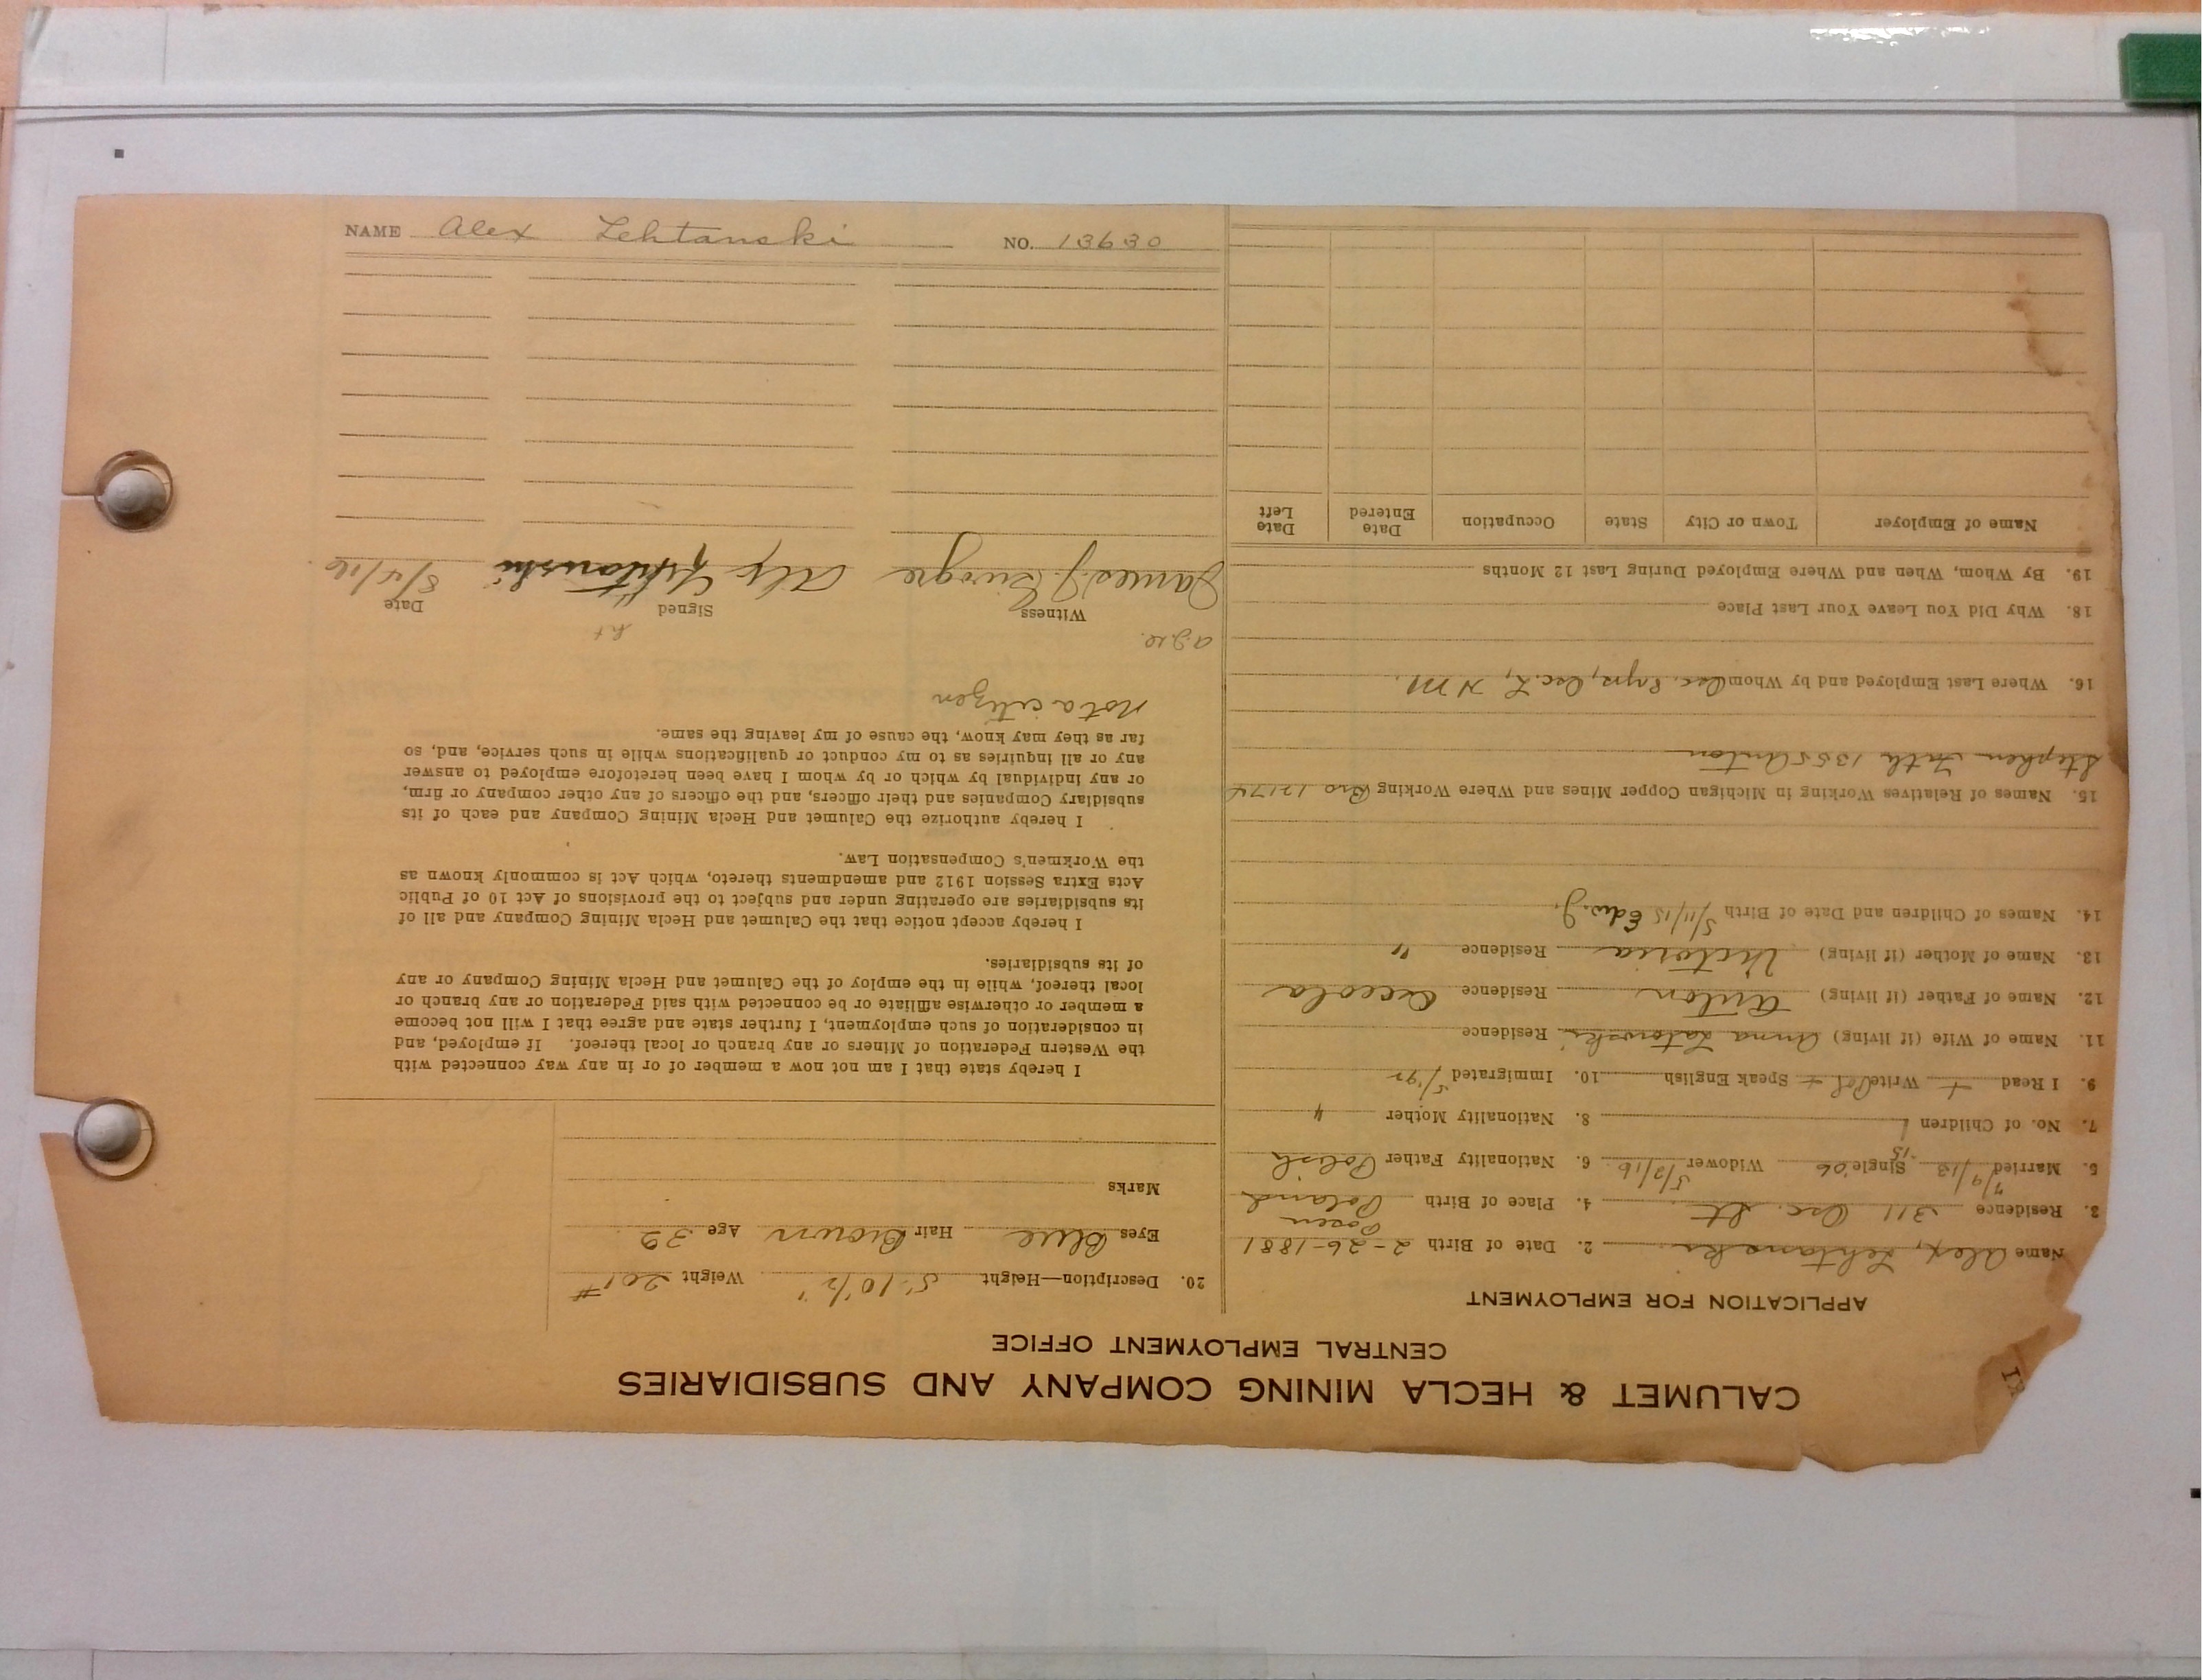 CALUMET & HECLA MINING COMPANY AND SUBSIDIARIES
CENTRAL EMPLOYMENT OFFICE
APPLICATION FOR EMPLOYMENT
Name Alex, Lehtanski 2. Date of Birth 2-26-1881
3. Residence 311 Osc. St. 4. Place of Birth Posen Poland
5. Married 7/9/13 Single Widower 6. Nationality Father Polish
7. No. of Children 1 8. Nationality Mother "
9. I Read + Write Pol + Speak English 10. Immigrated
11. Name of Wife (if living) Anna Residence
12. Name of Father (if living) Anton Residence Osceola
13. Name of Mother (if living) Victoria Residence "
14. Names of Children and Date of Birth 5/11/15 Edw. J.
15. Names of Relatives Working in Michigan Copper Mines and Where Working Bro 12174
Stephen 1355 Anton
16. Where Last Employed and by Whom Osc. L, N M.
18. Why Did You Leave Your Last Place
19. By Whom, When and Where Employed During Last 12 Months
Name of Employer Town or City State Occupation Date Entered Date Left
20. Description—Height 5'-10 1/2" Weight 201#
Eyes Blue Hair Brown Age 35
Marks
I hereby state that I am not now a member of or in any way connected with
the Western Federation of Miners or any branch or local thereof. If employed, and
in consideration of such employment, I further state and agree that I will not become
a member or otherwise affiliate or be connected with said Federation or any branch or
local thereof, while in the employ of the Calumet and Hecla Mining Company or any
of its subsidiaries.
I hereby accept notice that the Calumet and Hecla Mining Company and all of
its subsidiaries are operating under and subject to the provisions of Act 10 of Public
Acts Extra Session 1912 and amendments thereto, which Act is commonly known as
the Workmen's Compensation Law.
I hereby authorize the Calumet and Hecla Mining Company and each of its
subsidiary Companies and their officers, and the officers of any other company or firm,
or any individual by which or by whom I have been heretofore employed to answer
any or all inquiries as to my conduct or qualifications while in such service, and, so
far as they may know, the cause of my leaving the same.
Not a citizen
Witness Signed Date
James J. 
NAME Alex Lehtanski NO. 13630